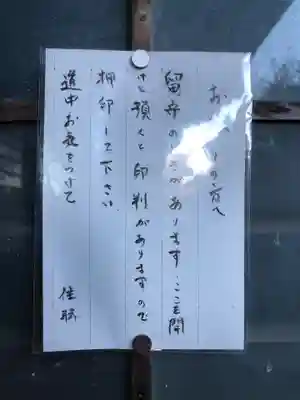 お	りの方へ
留守のときがあります・ここを開
けて頂くと印判がありますので
押印して下さい
道中お気をつけて
住職